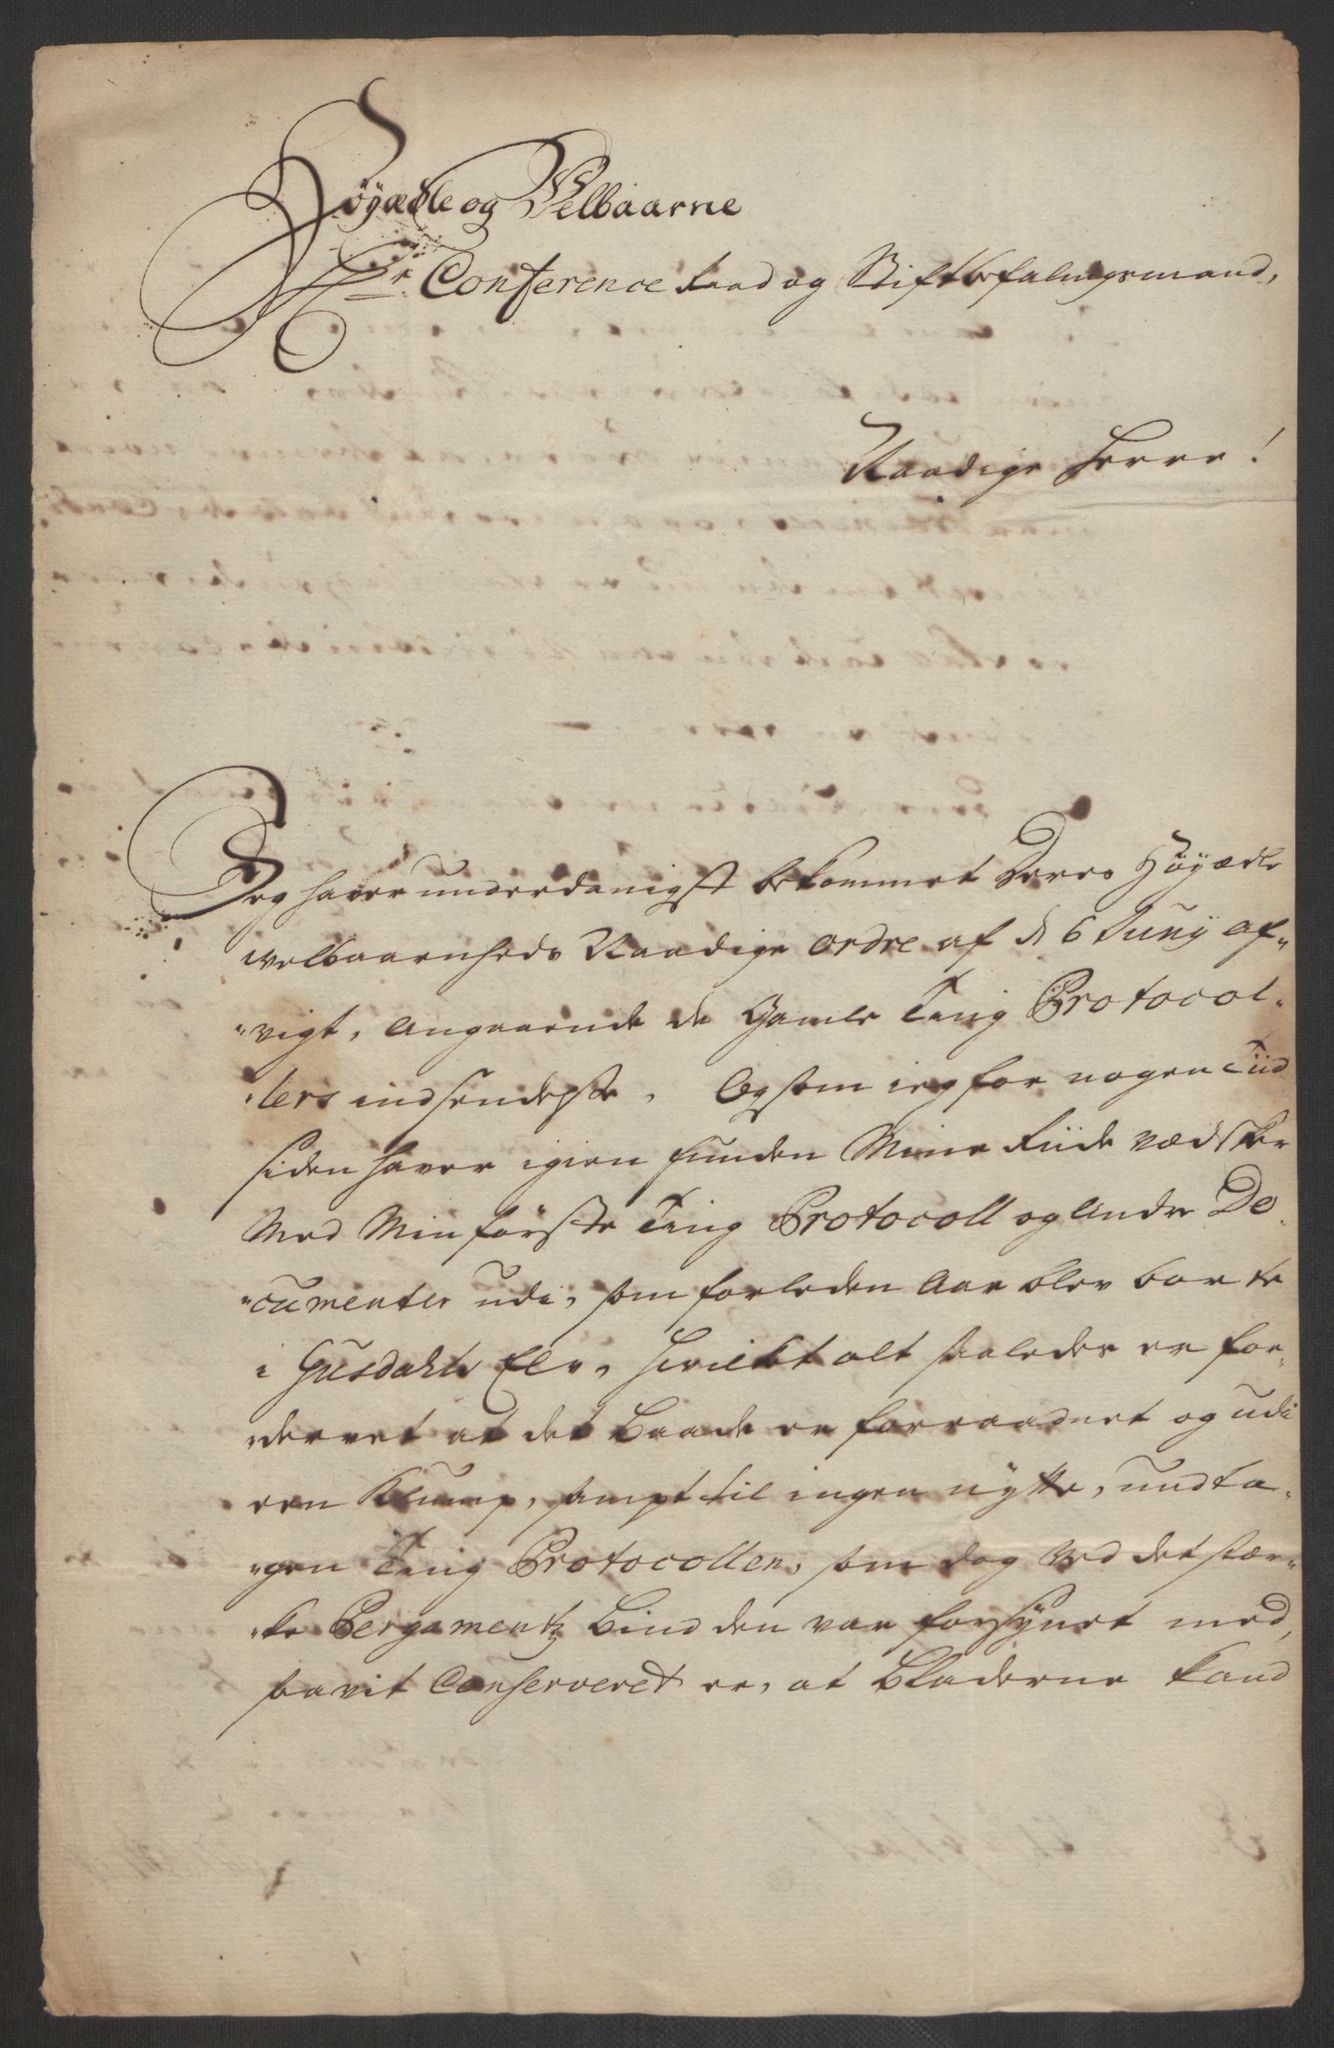 Høyædle og Velbaarne
Hr Conference Raad og Stiftbefalingsmand,
Naadige Herre!
Jeg haver underdanigst bekommet Deres Høyædle
welbaarnheds Naadige Ordre af d 6 Juny af„
„vigt, Angaaende de Gamle Ting Protocol„
„lers indsendelsse, Og som ieg for nogen Tiid
siden haver igien funden Mine Riide vædsker
Med Min første Ting Protocoll og Andre Do„
„cumenter udi, som forleden Aar blev borte
i Gusdahls Elv, hvilket alt saaledes er for„
„dervet at det Baade er forraadnet og udi
een Klump, sampt til ingen nytte, undta„
„gen Ting Protocollen, som dog Ved det stær„
„ke Pergamentz Bind den var forsynet med,
saavit Conserveret er, at Bladerne kand